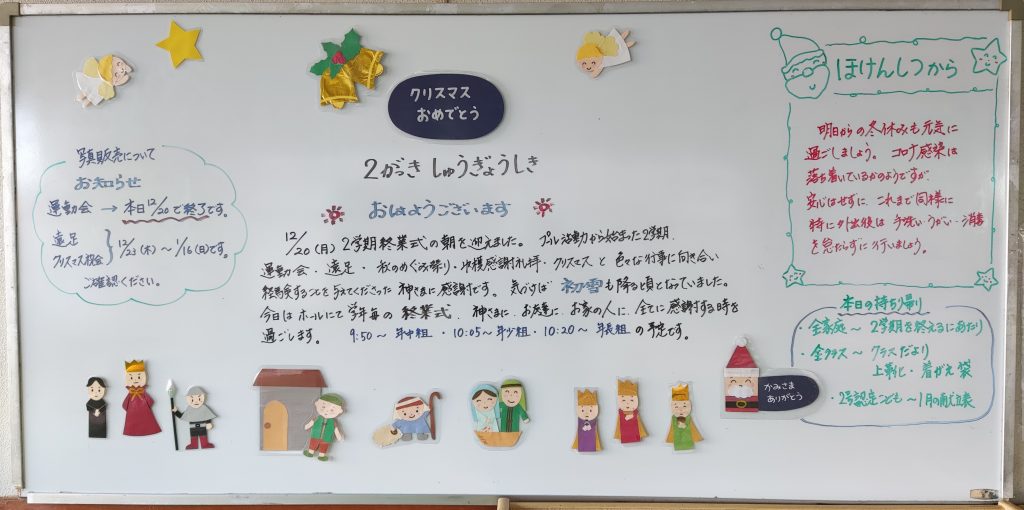 クリスマス
おめでとう
2がっき しゅうぎょうしき
おはようございます
12/20(月) 2学期終業式の朝を迎えました。 プール活動から始まった2学期、
運動会・遠足・秋のめぐみ祭り・収穫感謝礼拝・クリスマスと 色々な行事に向き合い
経験することを与えてくださった 神さまに感謝です。 気づけば 初雪も降る頃となっていました。
今日は ホールにて 学年毎の 終業式、神さまに、お友達に、お家の人に、全てに感謝する時を
過ごします。 9:50〜 年中組 ・ 10:05〜 年少組 ・ 10:20〜 年長組 の予定です。
写真販売について
お知らせ
運動会 → 本日12/20で終了です。
遠足
クリスマス祝会 } 12/23(木)〜1/16(日)です。
ご確認ください。
ほけんしつから
明日からの冬休みも元気に
過ごしましょう。 コロナ感染は
落ち着いているかのようですが
安心はせずに、これまで同様に
特に外出後は 手洗い・うがい・消毒
を怠らずに行いましょう。
本日の持ち帰り
・全家庭〜 2学期を終えるにあたり
・全クラス〜 クラスだより
上靴・着がえ袋
・2号認定こども〜 1月の献立表
かみさま
ありがとう